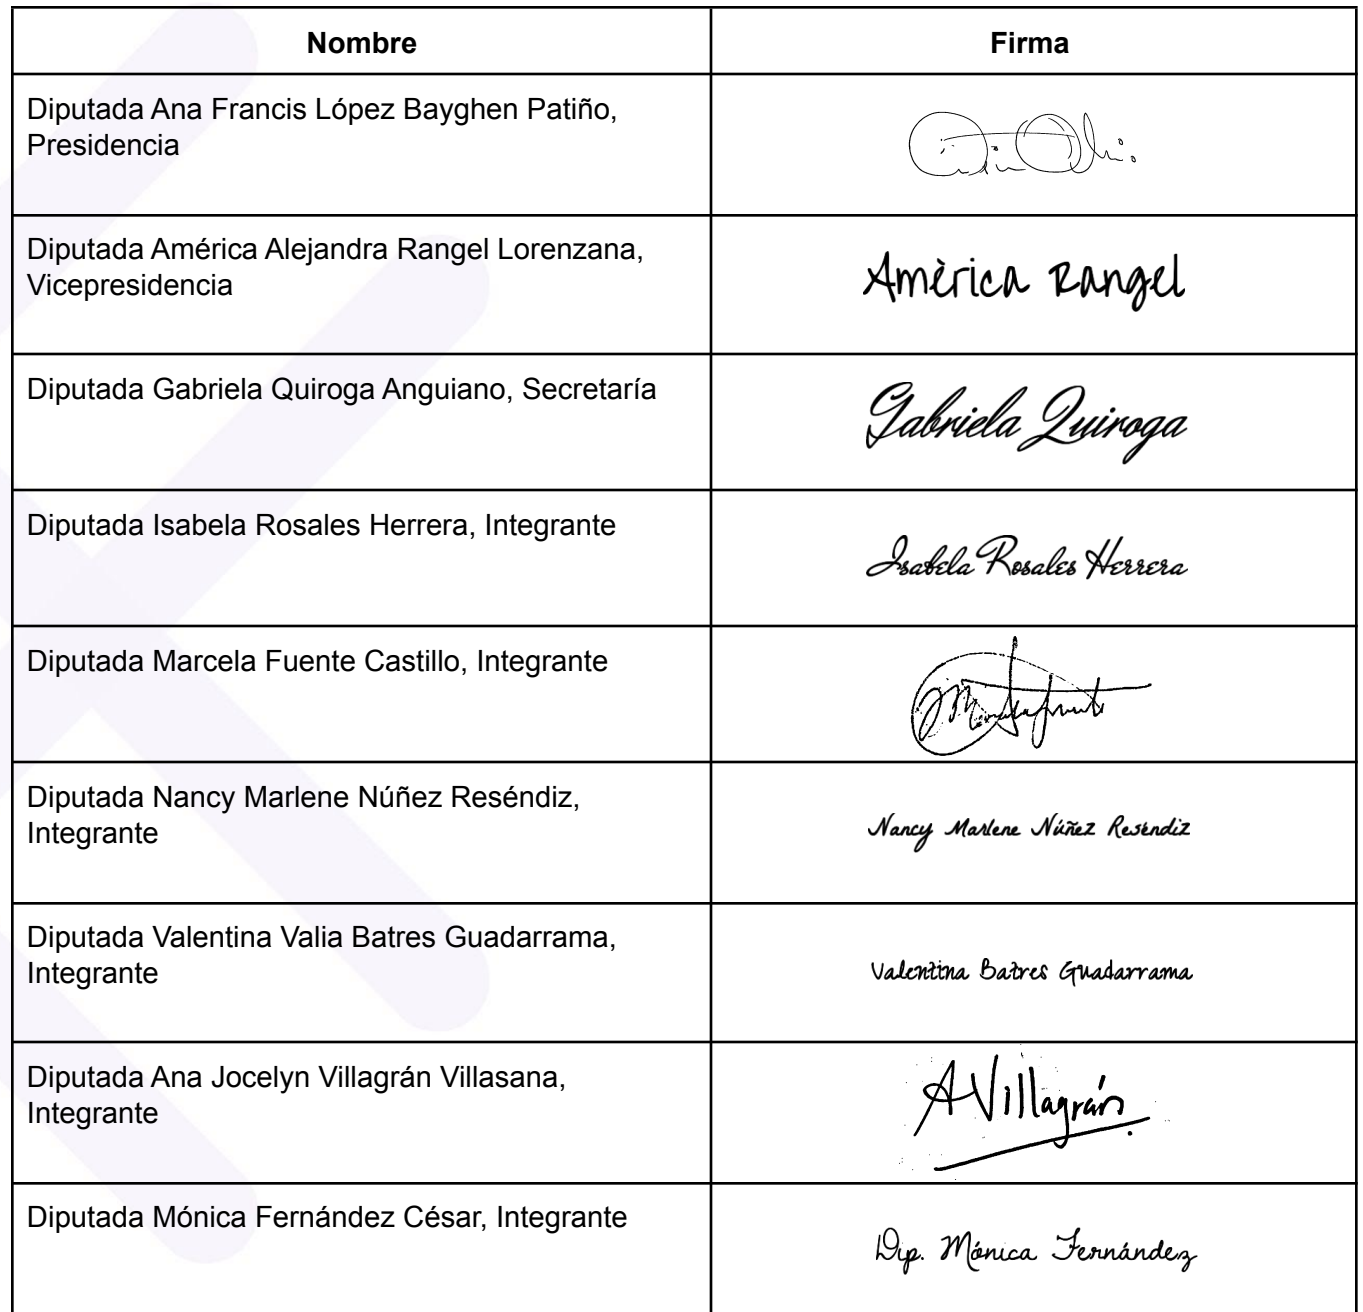 Nombre
Firma
Diputada Ana Francis López Bayghen Patiño,
Presidencia
Diputada América Alejandra Rangel Lorenzana,
Vicepresidencia
Amèrica Rangel
Diputada Gabriela Quiroga Anguiano, Secretaría
Gabriela Quiroga
Diputada Isabela Rosales Herrera, Integrante
Isabela Rosales Herrera
Diputada Marcela Fuente Castillo, Integrante
Diputada Nancy Marlene Núñez Reséndiz,
Integrante
Nancy Marlene Núñez Reséndiz
Diputada Valentina Valia Batres Guadarrama,
Integrante
Valentina Batres Guadarrama
Diputada Ana Jocelyn Villagrán Villasana,
Integrante
AVillagrán
Diputada Mónica Fernández César, Integrante
Dip. Mónica Fernández